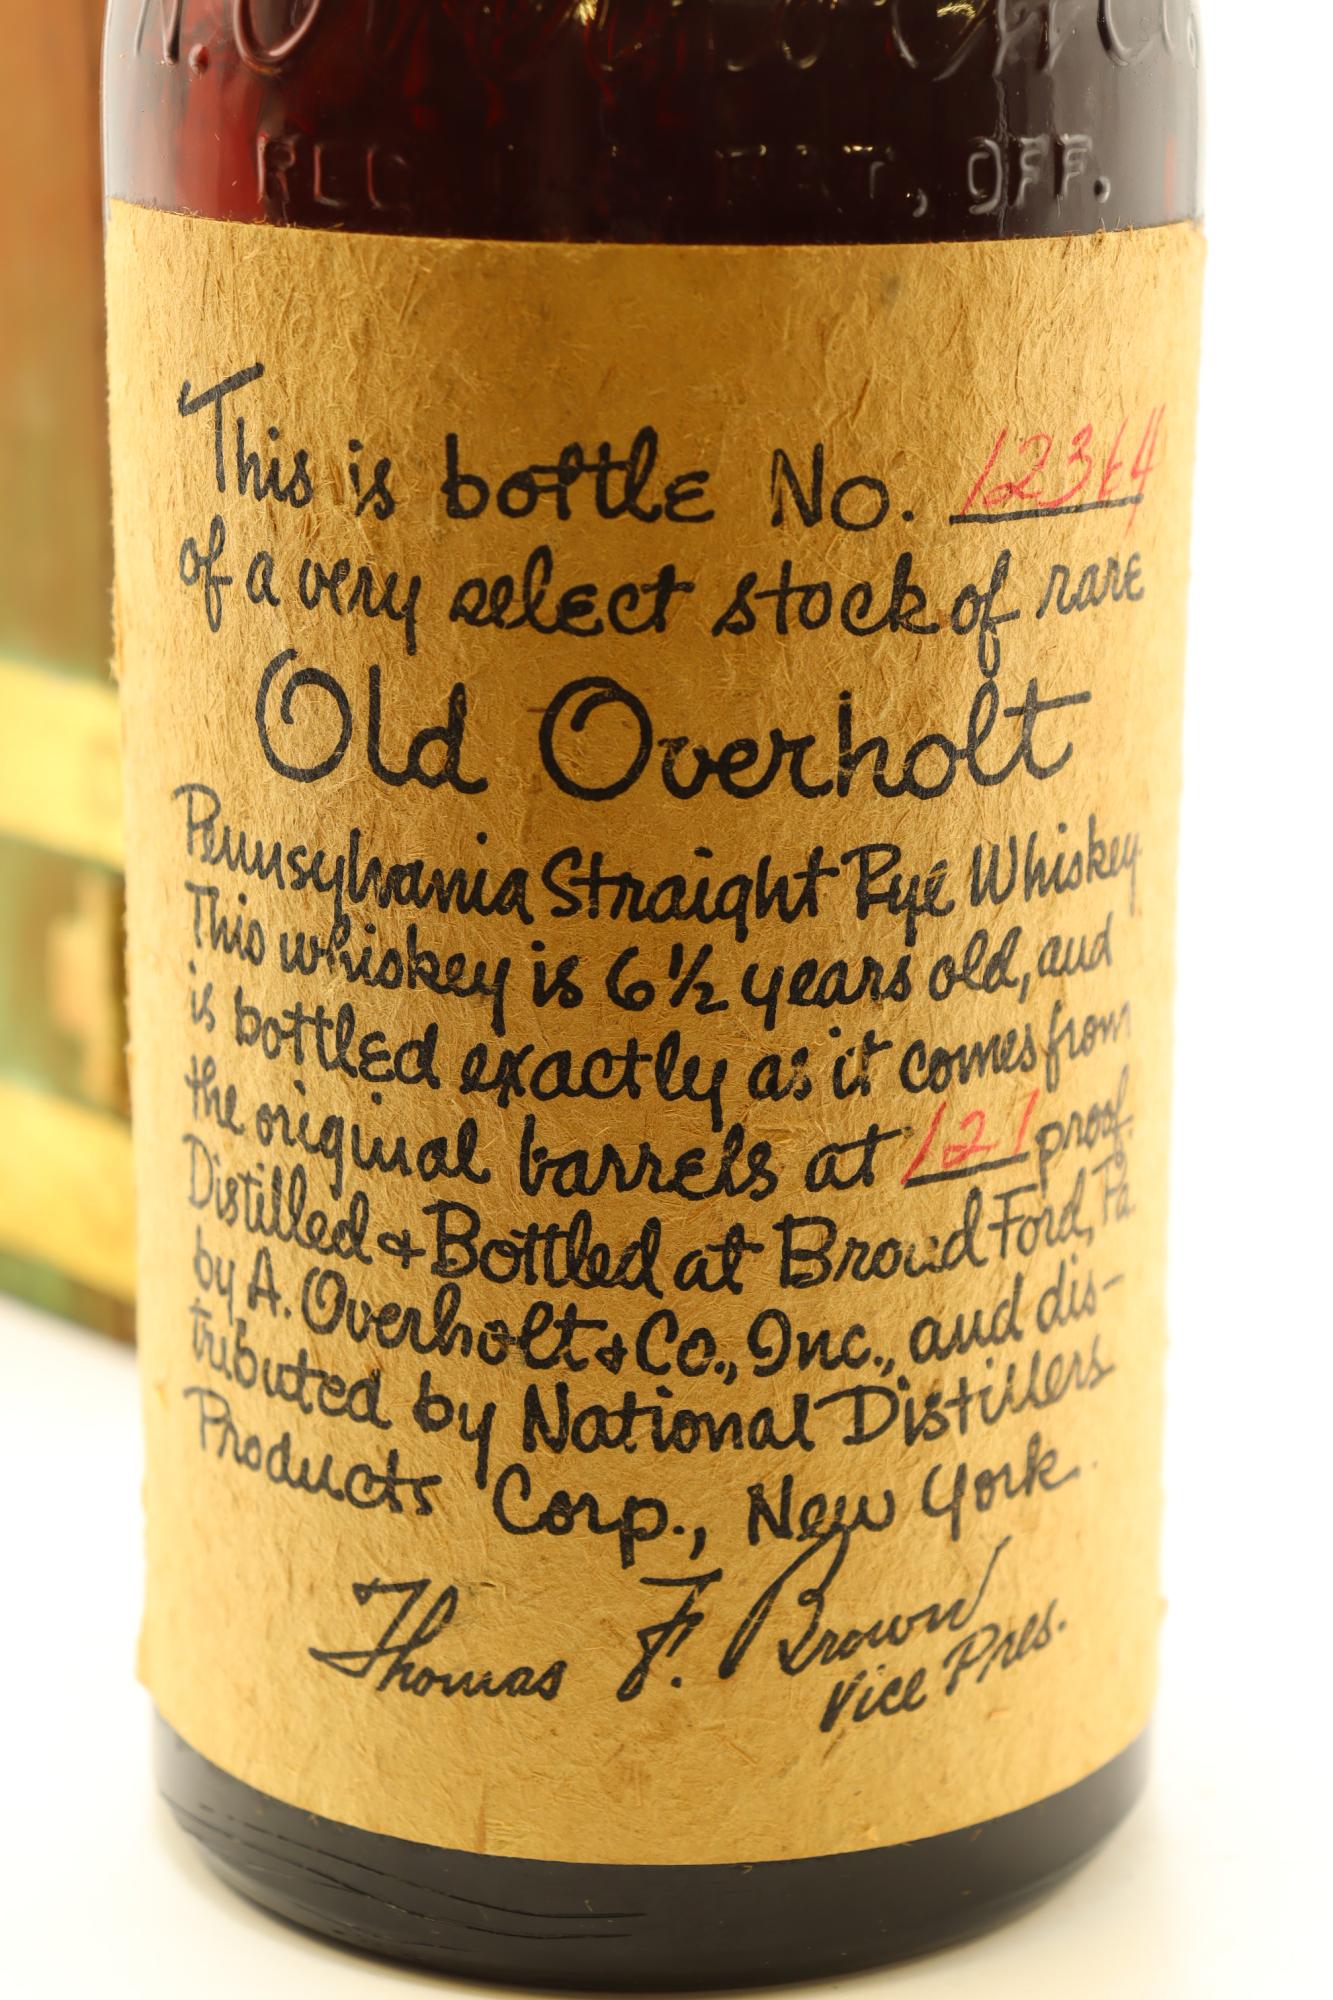 REG. PAT. OFF.
This is bottle No. 12364
of a very select stock of rare
Old Overholt
Pennsylvania Straight Rye Whiskey.
This whiskey is 6½ years old, and
is bottled exactly as it comes from
the original barrels at 121 proof.
Distilled & Bottled at Broad Ford, Pa.
by A. Overholt & Co., Inc., and dis-
tributed by National Distillers
Products Corp., New York.
Thomas F. Brown
Vice Pres.